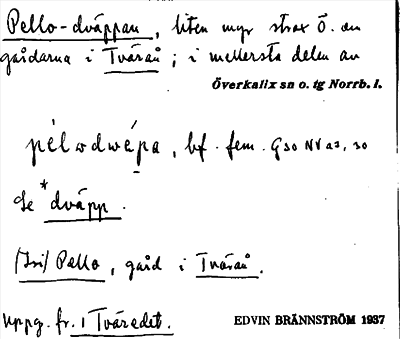 Pello-dväppan, liten myr strax Ö. om
gårdarna i Tvärån; i mellersta delen av
Överkalix sn o. tg Norrb. l.
pélωdwépa, bf. fem.
Se *dväpp.
(Isi) Pello, gård i Tvärån.
Uppg. fr. i Tväredet.
EDVIN BRÄNNSTRÖM 1937